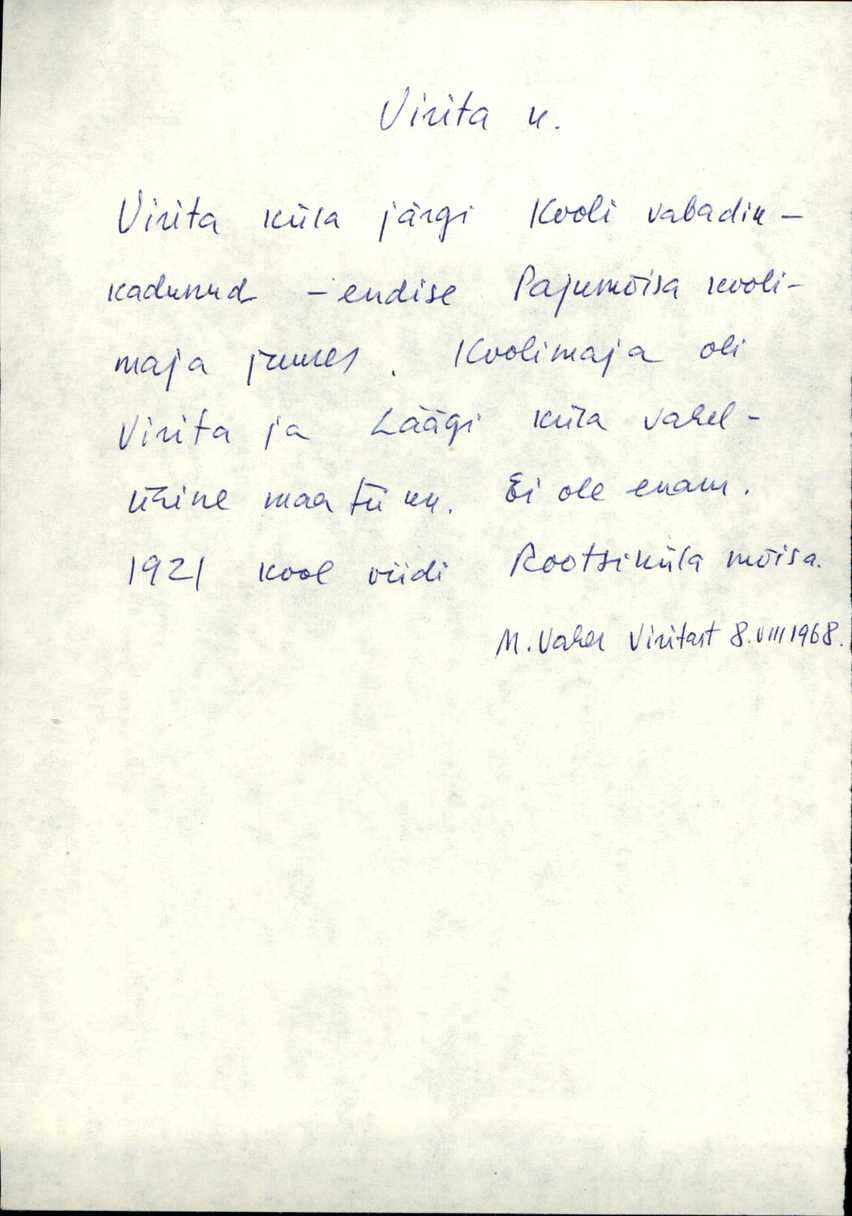 Virita k.
Virita küla järgi Kooli vabadik –
kadunud – endise Pajumõisa kooli-
maja juures. Koolimaja oli
Virita ja Läägi küla vahel –
ühine maatükk. Ei ole enam.
1921 kool viidi Rootsiküla mõisa.
M. Vaher Viritast 8.VIII 1968.